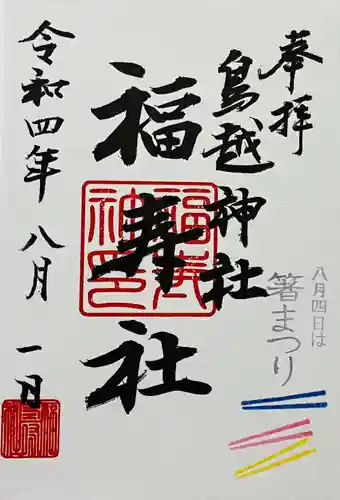 奉拝
八月四日は
箸まつり
鳥越神社
福寿社
令和四年八月一日